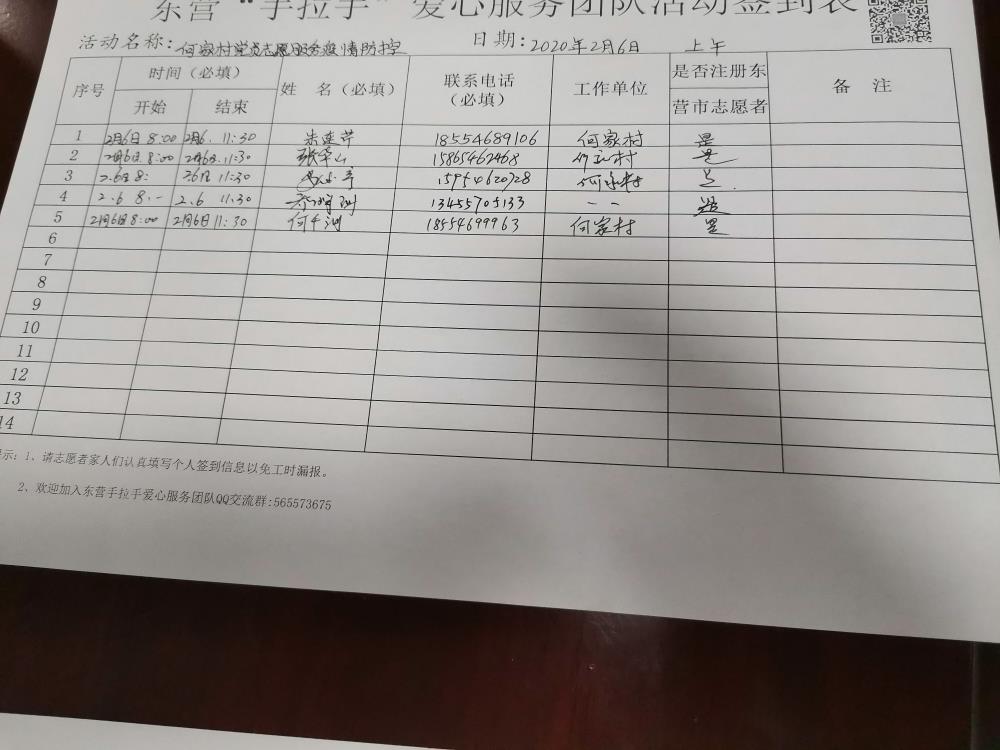 东营“手拉手”爱心服务团队活动签到表
活动名称：何家村党员志愿服务疫情防控 日期：2020年2月6日 上午
序号 时间（必填） 姓 名（必填） 联系电话（必填） 工作单位 是否注册东营市志愿者 备 注
开始 结束
1 2月6日 8:00 2月6. 11:30 朱莲芹 18554689106 何家村 是
2 2月6日.8:00 2月6日.11:30 15865462468 村 是
3 2.6日 8: 2.6日 11:30 15954620728 何家村 是
4 2.6 8.- 2.6 11:30 13455705133 - - 是
5 2月6日8:00 2月6日11:30 何 18554699963 何家村 是
6
7
8
9
10
11
12
13
14
示：1、请志愿者家人们认真填写个人签到信息以免工时漏报。
2、欢迎加入东营手拉手爱心服务团队QQ交流群:565573675